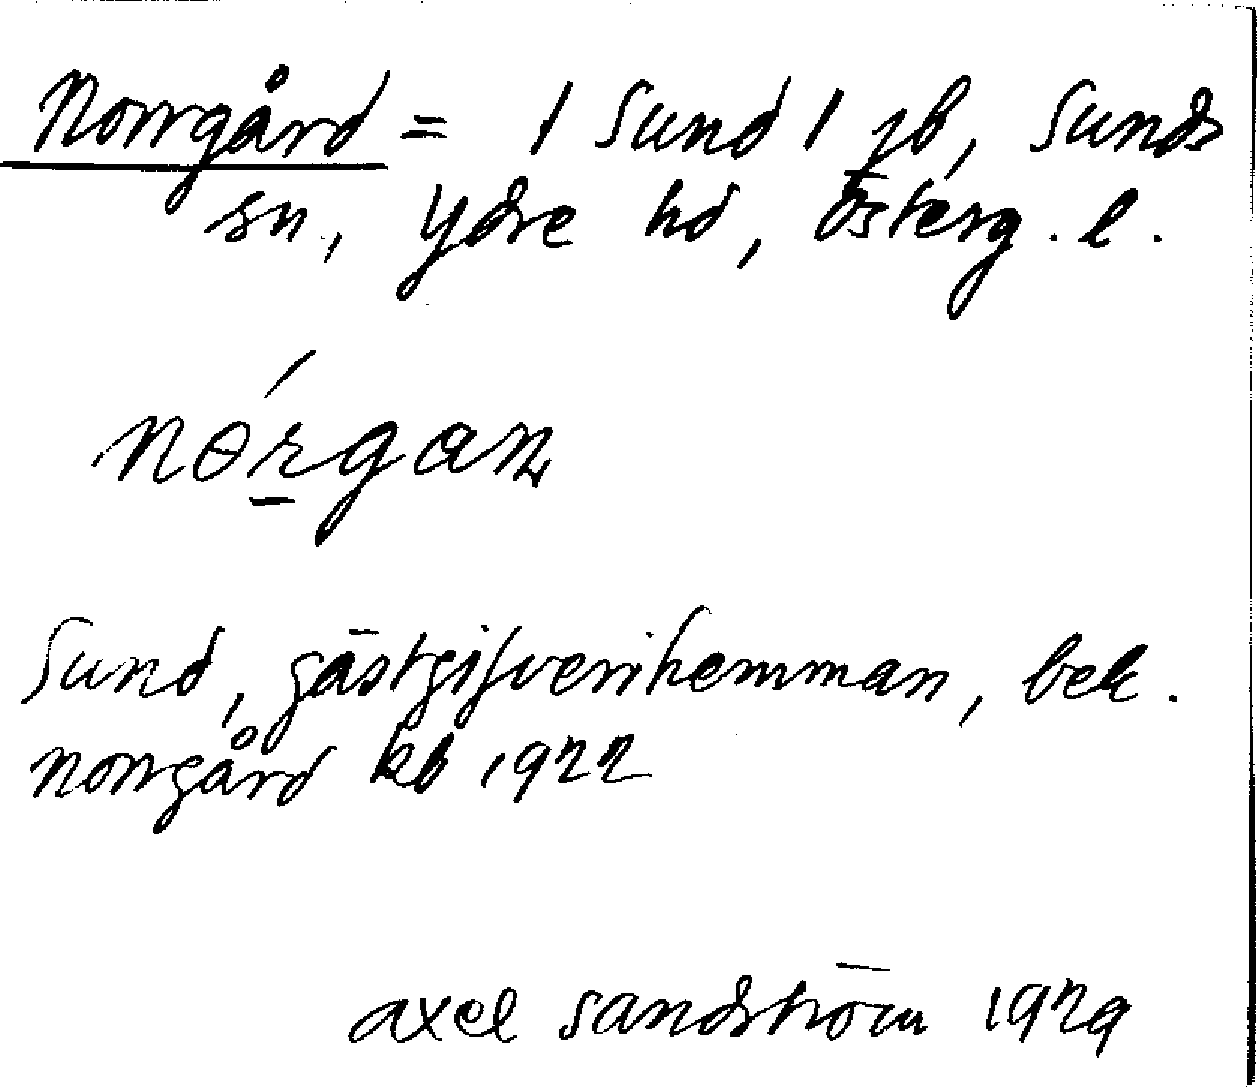 Norrgård = 1 Sund 1 jb, Sunds
sn, Ydre hd, Österg. l.
nɵ́rgan
Sund, gästgifverihemman, bek.
Norrgård kb 1922
Axel Sandström 1929